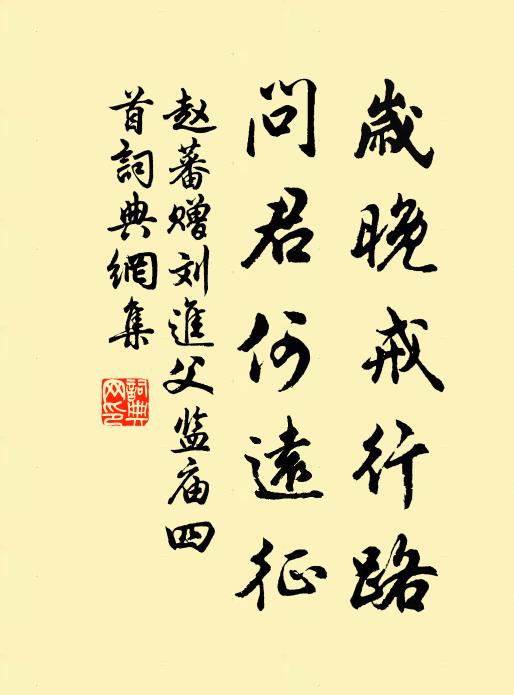 歲晚戒行路
問君何遠征
赵蕃赠刘進父监庙四
首詞典網集
詞典
网印